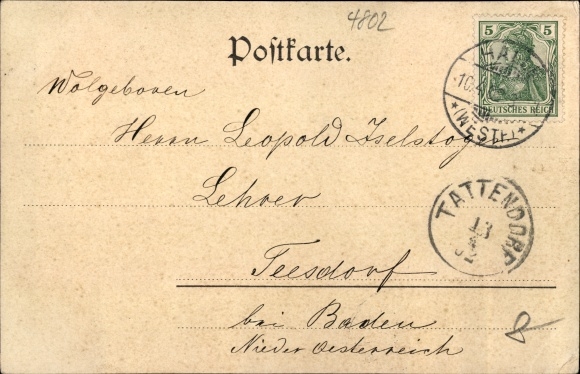 4802
Postkarte.
5 5
DEUTSCHES REICH
(WESTF)
Wolgeboren
Herrn Leopold Iselstog
Lehrer
TATTENDORF
13
Teesdorf
bei Baden
Nieder Oesterreich